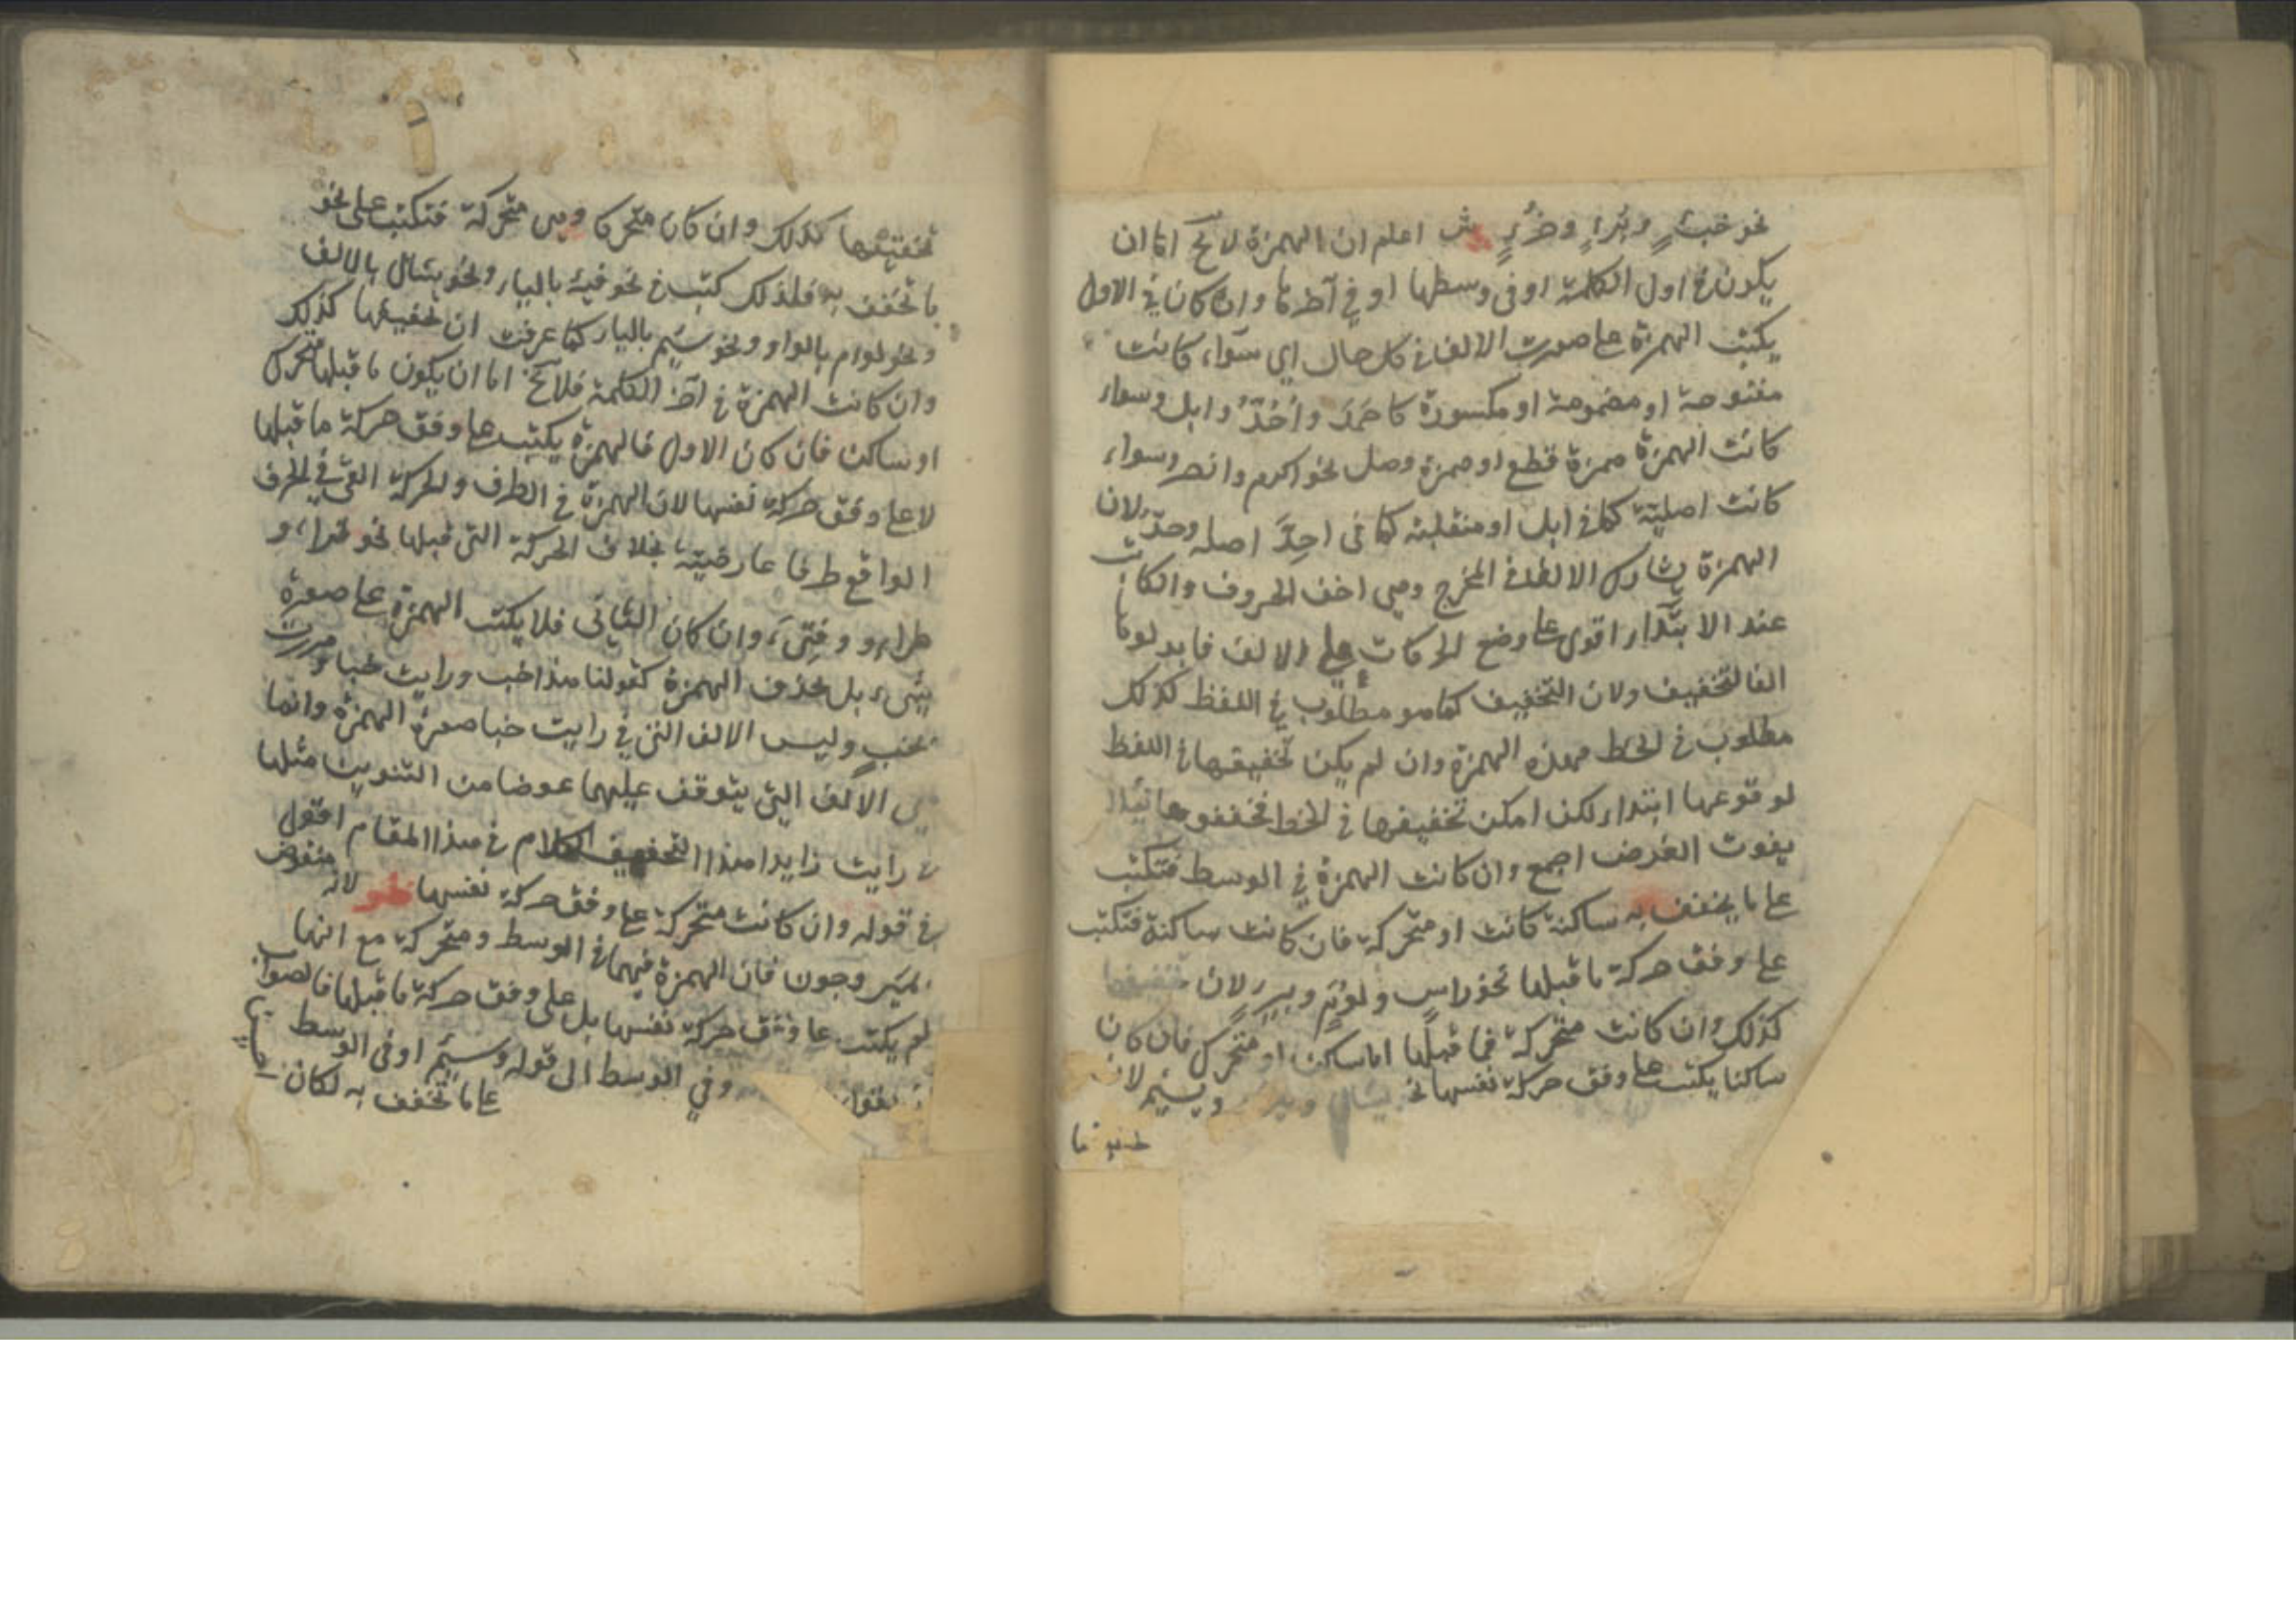 نحو خبءٍ وبُرءٍ وخُرءٍ ش اعلم ان الهمزة لا يخ اما ان
يكون في اول الكلمة او في وسطها او في آخرها وان كان في الاول
يكتب الهمزة على صورت الالف في كل حال اي سوآء كانت
مفتوحة او مضمومة او مكسورة كاحمَدَ واُحُدٌ وابل وسواء
كانت الهمزة همزة قطع او همزة وصل نحو اكرم وانصر وسواء
كانت اصليّة كما في ابل او منقلبة كما في احِدَّ اصله وحدّ لان
الهمزة يشارك الالف في المخرج وهي اخف الحروف والكاتب
عند الابتدآء اقوى على وضع الحركات على الالف فابدلوها
الفا لتخفيف ولان التخفيف كما هو مطلوب في اللفظ كذلك
مطلوب في الخط فهذه الهمزة وان لم يكن تخفيفها في اللفظ
لوقوعها ابتداء لكن امكن تخفيفها في الخط فخففوها لئلا
يفوت الغرض اجمع وان كانت الهمزة في الوسط فتكتب
على ما يخفف به ساكنة كانت او متحركة فان كانت ساكنة فتكتب
على وفق حركة ما قبلها نحو راسٍ ولؤمٍ وبيرٍ لان تخفيفها
كذلك وان كانت متحركة فما قبلها اما ساكن او متحرك فان كان
ساكنا يكتب على وفق حركة نفسها نحو يسال ويسئم لان
تخفيفها كذلك وان كان متحركا وهي متحركة فتكتب على نحو
ما تخفف به فلذلك كتب في نحو فية بالياء ونحو يسال بالالف
ونحو لوام بالواو ونحو سئيم بالياء كما عرفت ان تخفيفها كذلك
وان كانت الهمزة في آخر الكلمة فلا يخ اما ان يكون ما قبلها متحرك
او ساكن فان كان الاول فالهمزة يكتب على وفق حركة ما قبلها
لا على وفق حركة نفسها لان الهمزة في الطرف والحركة التي في الحرف
الواقع طرفا عارضية بخلاف الحركة التي قبلها نحو قرا، و
طرا، و وفتىَ، وان كان الثاني فلا يكتب الهمزة على صورة
شيء بل يحذف الهمزة كقولنا هذا خب ورايت خبا ومررت
بخبٍ وليس الالف التي في رايت خبا صورة الهمزة وانما
هي الالف التي يتوقف عليها عوضا من التنوين مثلها
في رايت زايدا هذا الكلام في هذا المقام اقول
في قوله وان كانت متحركة على وفق حركة نفسها نظر لانه منقوض
بمئر وجون فان الهمزة فيهما في الوسط ومتحركة مع انها
لم يكتب على وفق حركة نفسها بل على وفق حركة ما قبلها فالصواب
وفي الوسط الى قوله وسئم او في الوسط
على ما تخفف به لكان